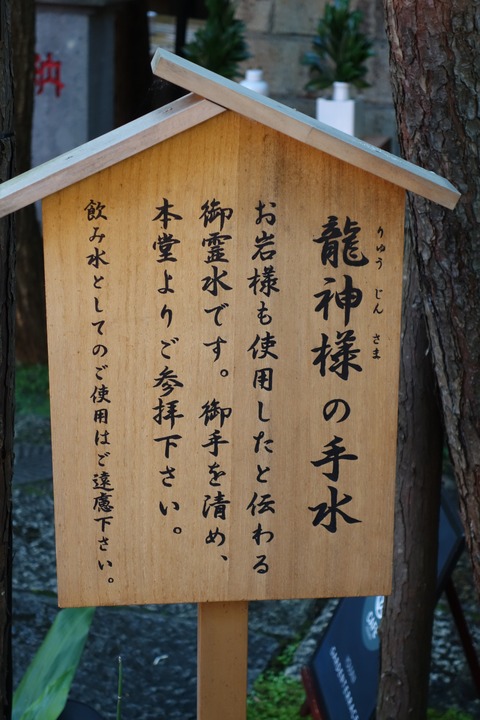 龍神様の手水
りゅうじんさま
お岩様も使用したと伝わる
御霊水です。御手を清め、
本堂よりご参拝下さい。
飲み水としてのご使用はご遠慮下さい。
納